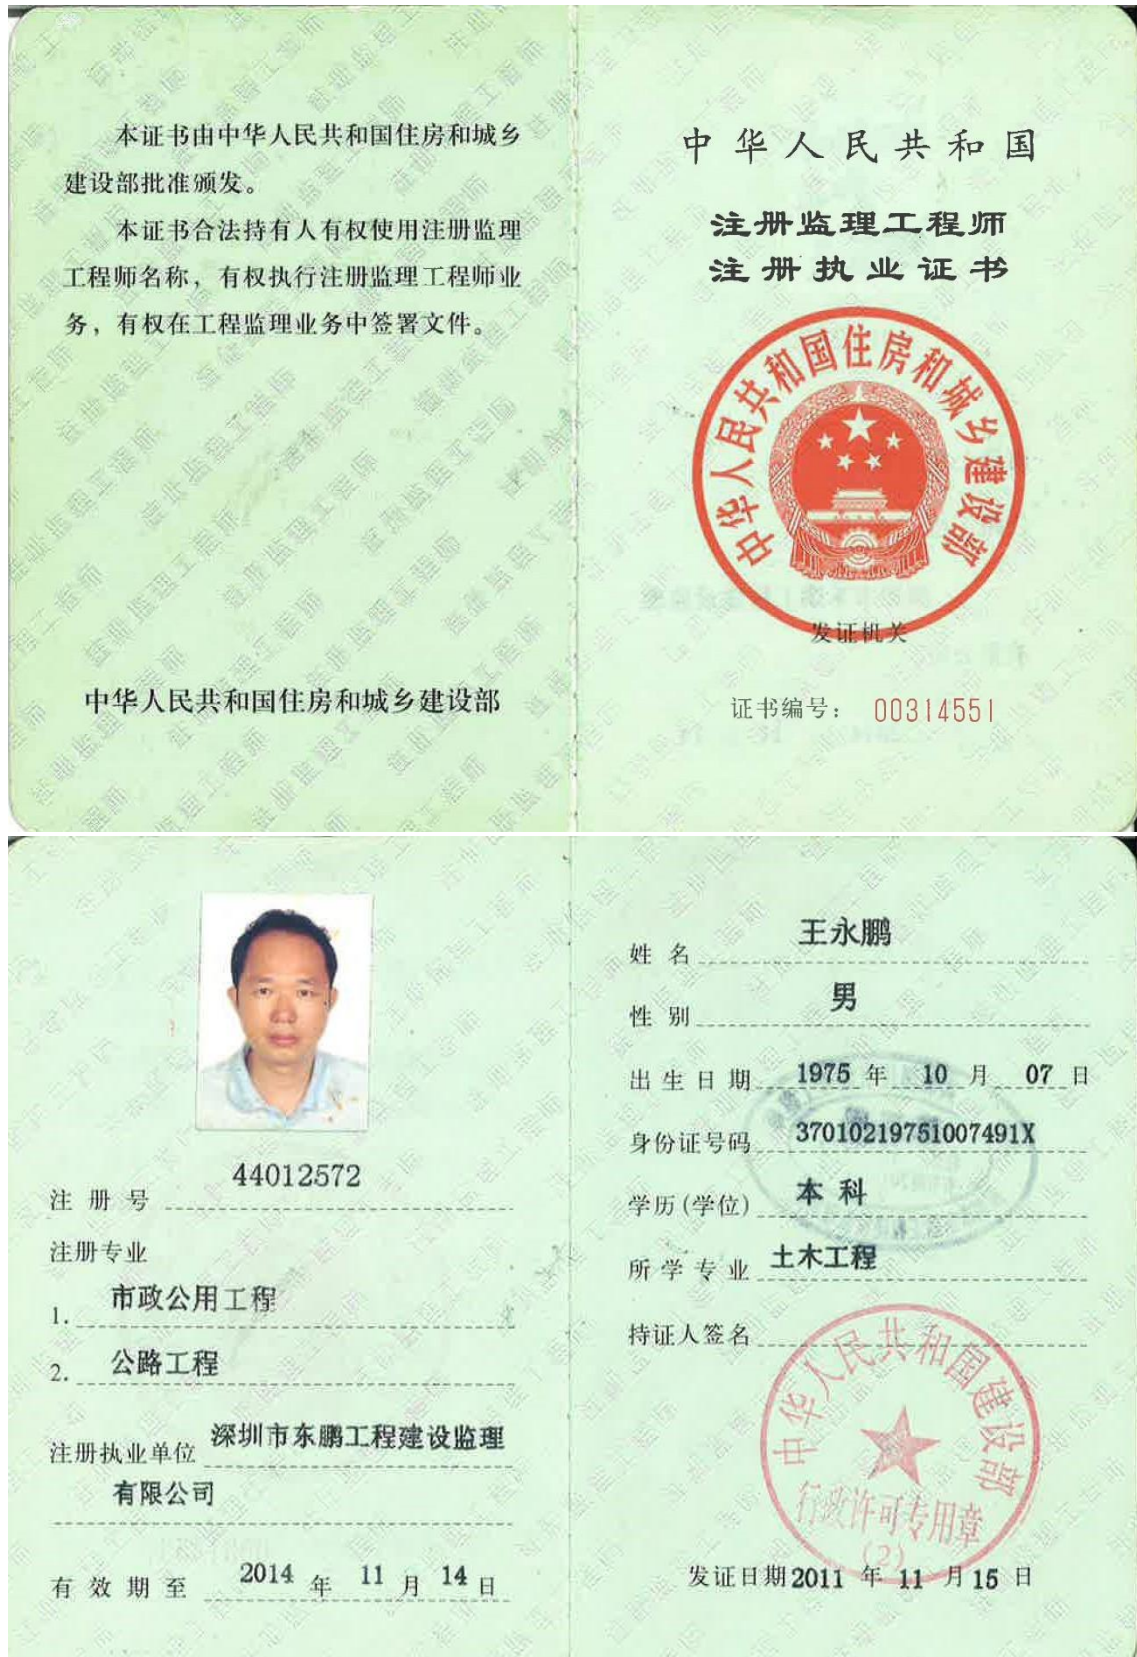 本证书由中华人民共和国住房和城乡
建设部批准颁发。
本证书合法持有人有权使用注册监理
工程师名称，有权执行注册监理工程师业
务，有权在工程监理业务中签署文件。
中华人民共和国住房和城乡建设部
中华人民共和国
注册监理工程师
注册执业证书
中华人民共和国住房和城乡建设部
发证机关
证书编号： 00314551
注 册 号 44012572
注册专业
1. 市政公用工程
2. 公路工程
注册执业单位 深圳市东鹏工程建设监理
有限公司
有 效 期 至 2014 年 11 月 14 日
姓 名 王永鹏
性 别 男
出 生 日 期 1975 年 10 月 07 日
身份证号码 37010219751007491X
学历(学位) 本 科
所 学 专 业 土木工程
持证人签名
中华人民共和国建设部
行政许可专用章
(2)
发证日期 2011 年 11 月 15 日